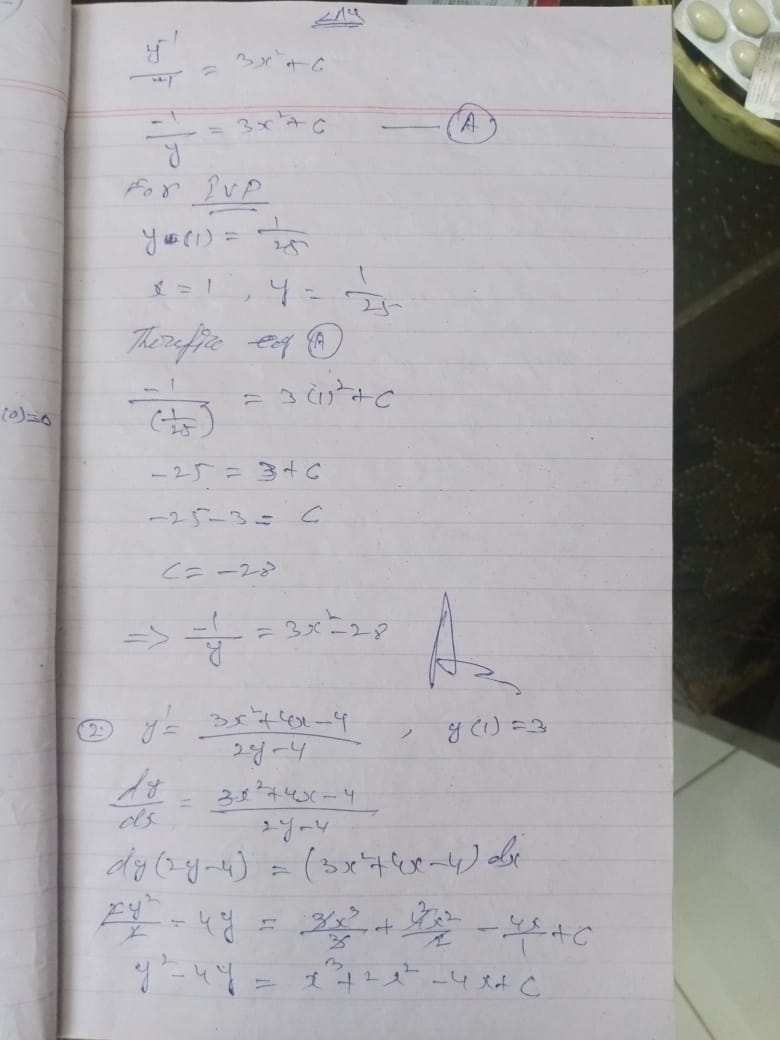 y⁻¹/-1 = 3x² + C
-1/y = 3x² + C —— (A)
For IVP
y(1) = 1/25
x = 1 , y = 1/25
Therefore eq (A)
-1/(1/25) = 3(1)² + C
(0)=0
-25 = 3 + C
-25-3 = C
C = -28
=> -1/y = 3x² - 28
(2) y' = 3x²+4x-4/2y-4 , y(1) = 3
dy/dx = 3x²+4x-4/2y-4
dy(2y-4) = (3x²+4x-4) dx
2y²/2 - 4y = 3x³/3 + 4x²/2 - 4x/1 + C
y² - 4y = x³ + 2x² - 4x + C